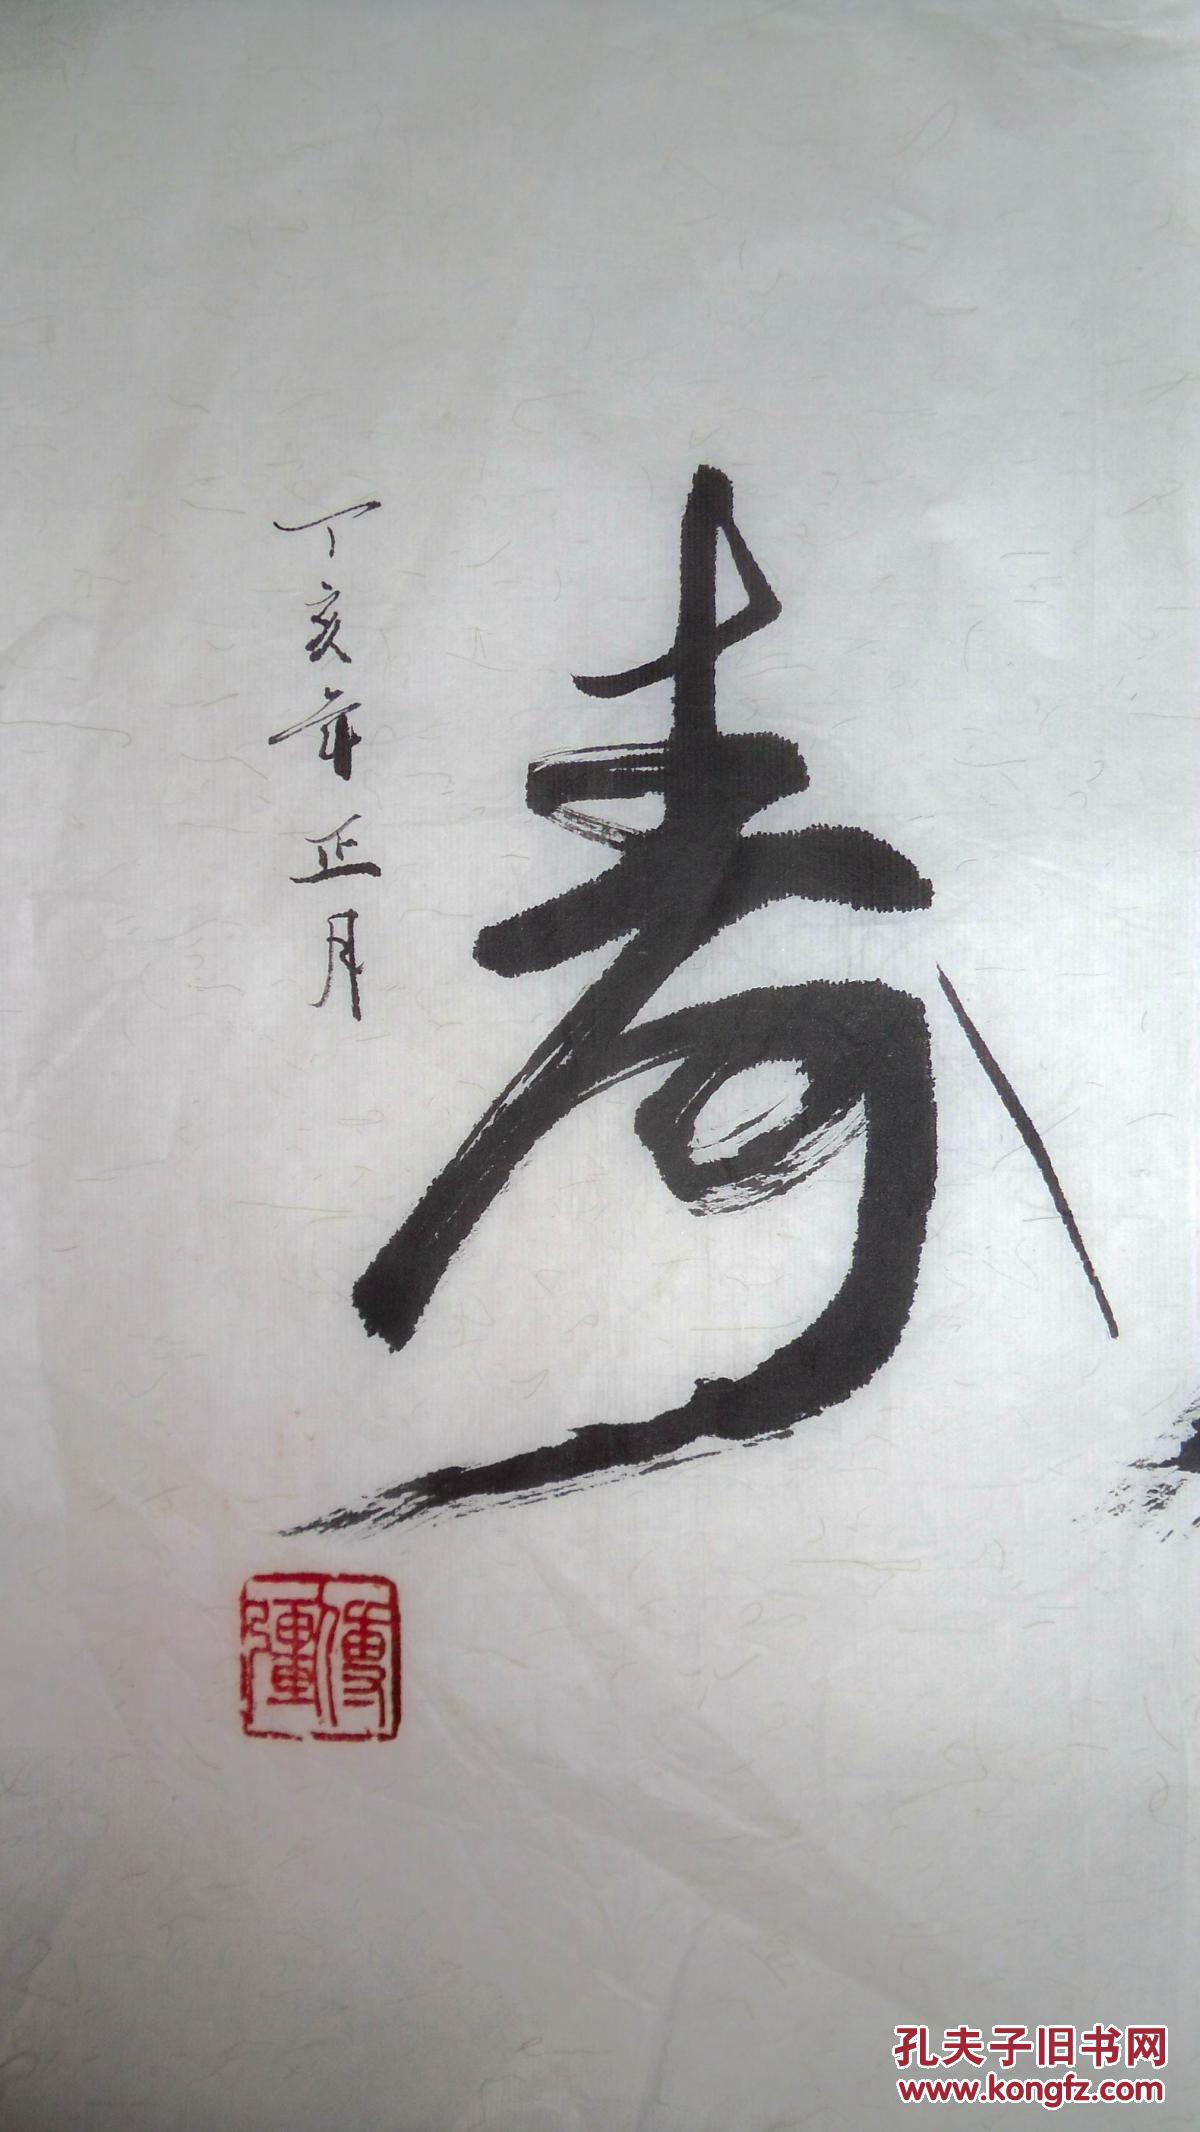 寿
丁亥年正月
孔夫子旧书网
www.kongfz.com